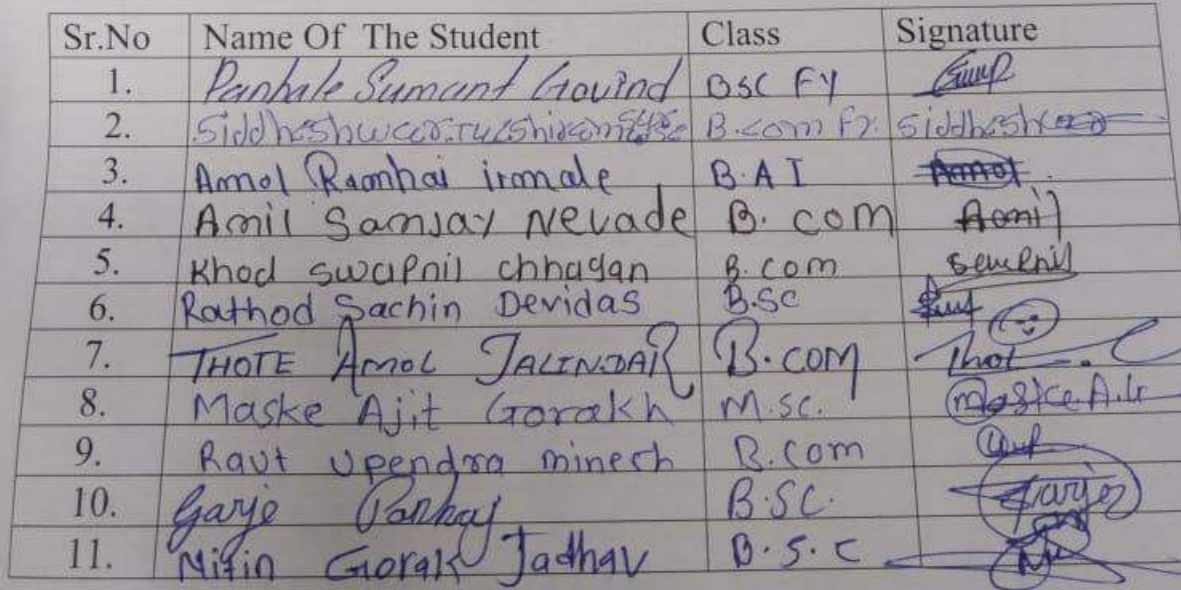 Sr.No Name Of The Student Class Signature
1. Panhale Sumant Govind BSC FY
2. B.com Fy.
3. Amol irmale B.A I Amol
4. Amil Sanjay Nevade B. com Aomil
5. Khod swapnil chhagan B.com swapnil
6. Rathod Sachin Devidas B.Sc
7. THOTE AMOL JALINDAR B.COM Thot
8. Maske Ajit Gorakh M.sc. Maske A.G
9. Raut Upendra minesh B.com
10. Garje Pankaj B.SC. Garje
11. Nitin Gorak Jadhav B.S.C